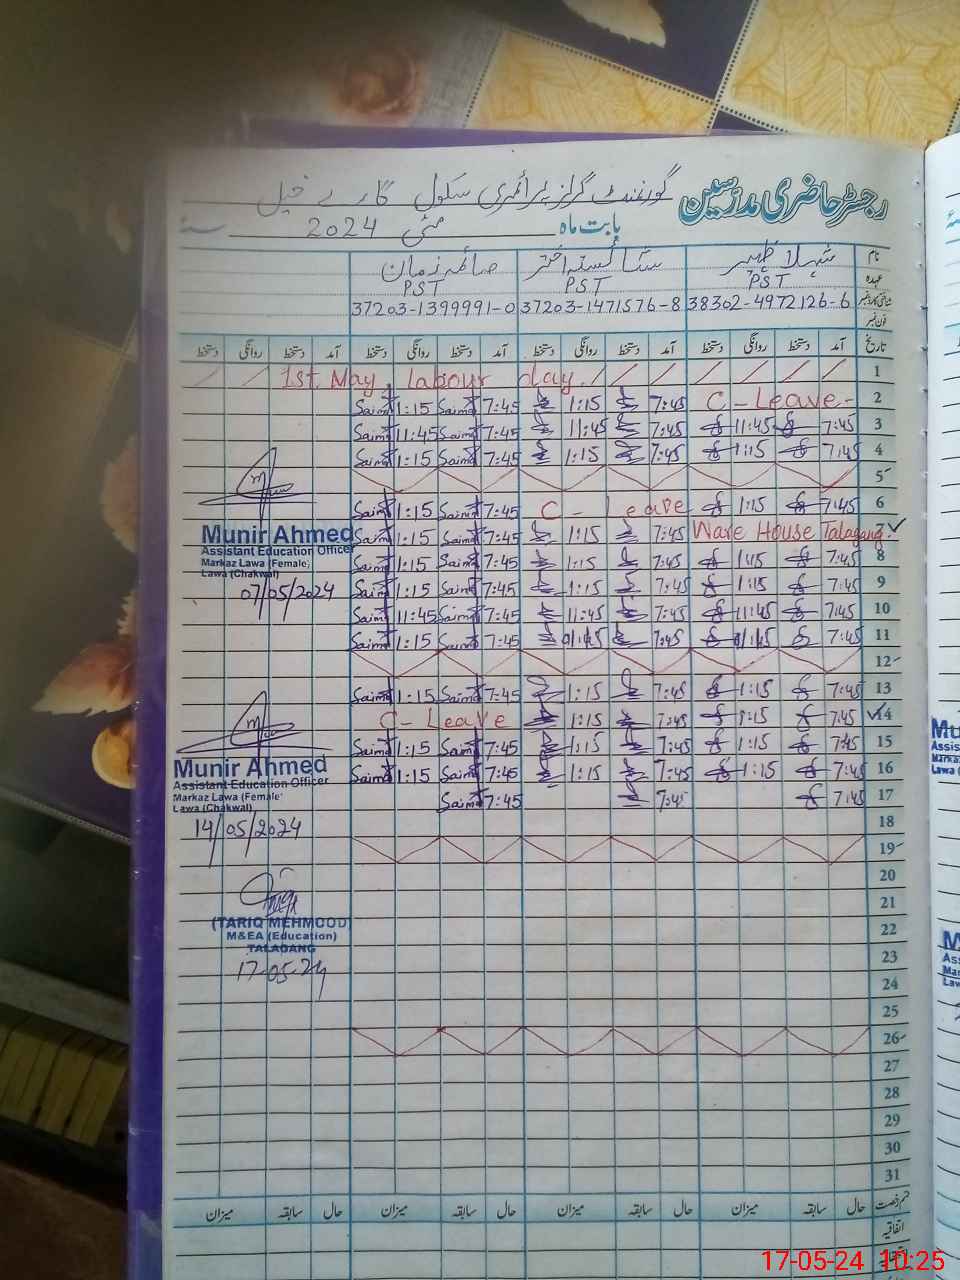 رجسٹر حاضری مدرسین
گورنمنٹ گرلز پرائمری سکول گارے خیل
بابت ماہ مئی 2024 سنۂ
نام شہلا ظہیر شائستہ اختر صائمہ زمان
عہدہ PST PST PST
38302-4972126-6 37203-1471576-8 37203-1399991-0
فون نمبر
تاریخ آمد دستخط روانگی دستخط آمد دستخط روانگی دستخط آمد دستخط روانگی دستخط آمد دستخط روانگی دستخط
1st May, labour day. 1
Saima 1:15 Saima 7:45 1:15 7:45 C-Leave- 2
Saima 11:45 Saima 7:45 11:45 7:45 11:45 7:45 3
Saima 1:15 Saima 7:45 1:15 7:45 1:15 7:45 4
5
Saima 1:15 Saima 7:45 C - Leave 1:15 7:45 6
Saima 1:15 Saima 7:45 1:15 7:45 Ware House Talagang. 7
Saima 1:15 Saima 7:45 1:15 7:45 1:15 7:45 8
Saima 1:15 Saima 7:45 1:15 7:45 1:15 7:45 9
Saima 11:45 Saima 7:45 11:45 7:45 11:45 7:45 10
Saima 1:15 Saima 7:45 7:45 7:45 11
12
Saima 1:15 Saima 7:45 1:15 7:45 1:15 7:45 13
C-Leave 1:15 7:45 1:15 7:45 14
Saima 1:15 Saima 7:45 1:15 7:45 1:15 7:45 15
Saima 1:15 Saima 7:45 1:15 7:45 1:15 7:45 16
Saima 7:45 7:45 7:45 17
18
19
20
21
22
23
24
25
26
27
28
29
30
31
Munir Ahmed
Assistant Education Officer
Markaz Lawa (Female)
Lawa (Chakwal)
07/05/2024
Munir Ahmed
Assistant Education Officer
Markaz Lawa (Female)
Lawa (Chakwal)
14/05/2024
(TARIQ MEHMOOD)
M&EA (Education)
TALAGANG
17-05-24
قسم رخصت حال سابقہ میزان حال سابقہ میزان حال سابقہ میزان حال سابقہ میزان
اتفاقیہ
17-05-24 10:25